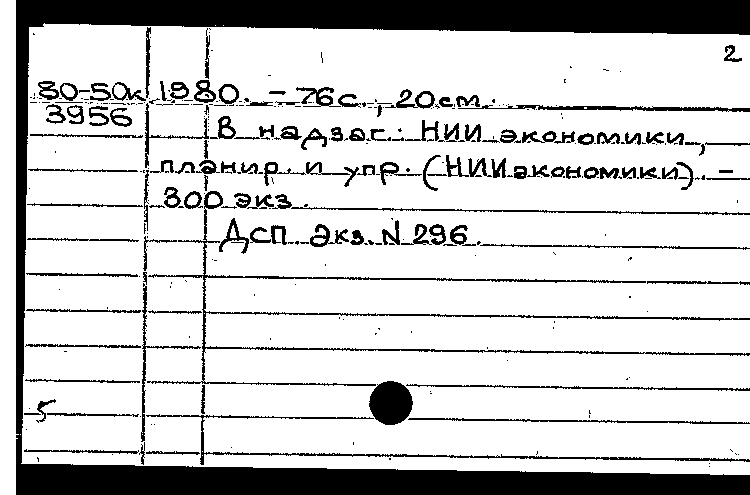 2
80-50к 1980. – 76с., 20см.
3956
В надзаг.: НИИ экономики,
планир. и упр. (НИИэкономики). –
300 экз.
Дсп. Экз. N 296.
5